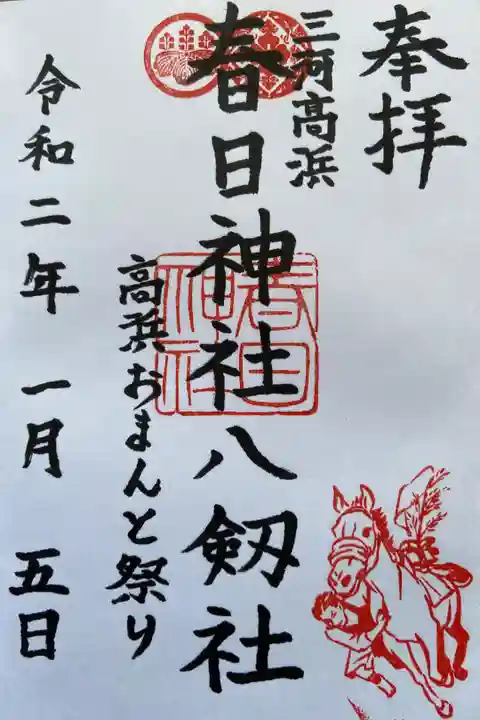 奉拝
三河高浜
春日神社八剱社
春日神社
高浜おまんと祭り
令和二年一月五日